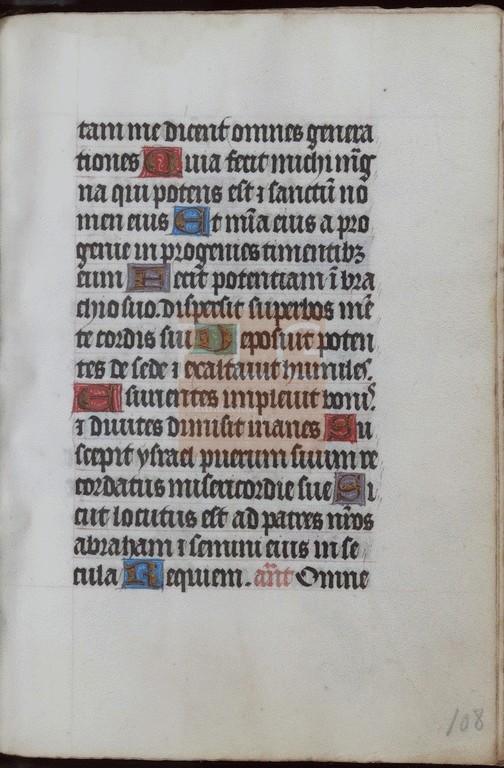 tam me dicent omnes genera
tiones Quia fecit michi mag̃
na qui potens est ⁊ sanctũ no
men eius Et mĩa eius a pro
genie in progenies timentibꝫ
eum Fecit potentiam ĩ bra
chio suo. Dispersit superbos mẽ
te cordis sui Deposuit poten
tes de sede ⁊ exaltauit humiles.
Esurientes impleuit bonis.
⁊ diuites dimisit inanes Su
scepit ysrael puerum suum re
cordatus misericordie sue Si
cut locutus est ad patres nr̃os
abraham ⁊ semini eius in se
cula Requiem. añt Omne
108